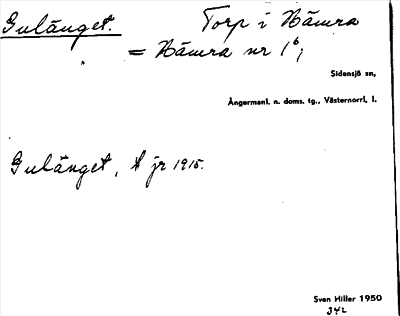 Gulänget. Torp i Nämra
= Nämra nr 1⁶;
Sidensjö sn,
Ångermanl. n. doms. tg., Västernorrl. l.
Gulänget, jr 1915.
Sven Hiller 1950
J42